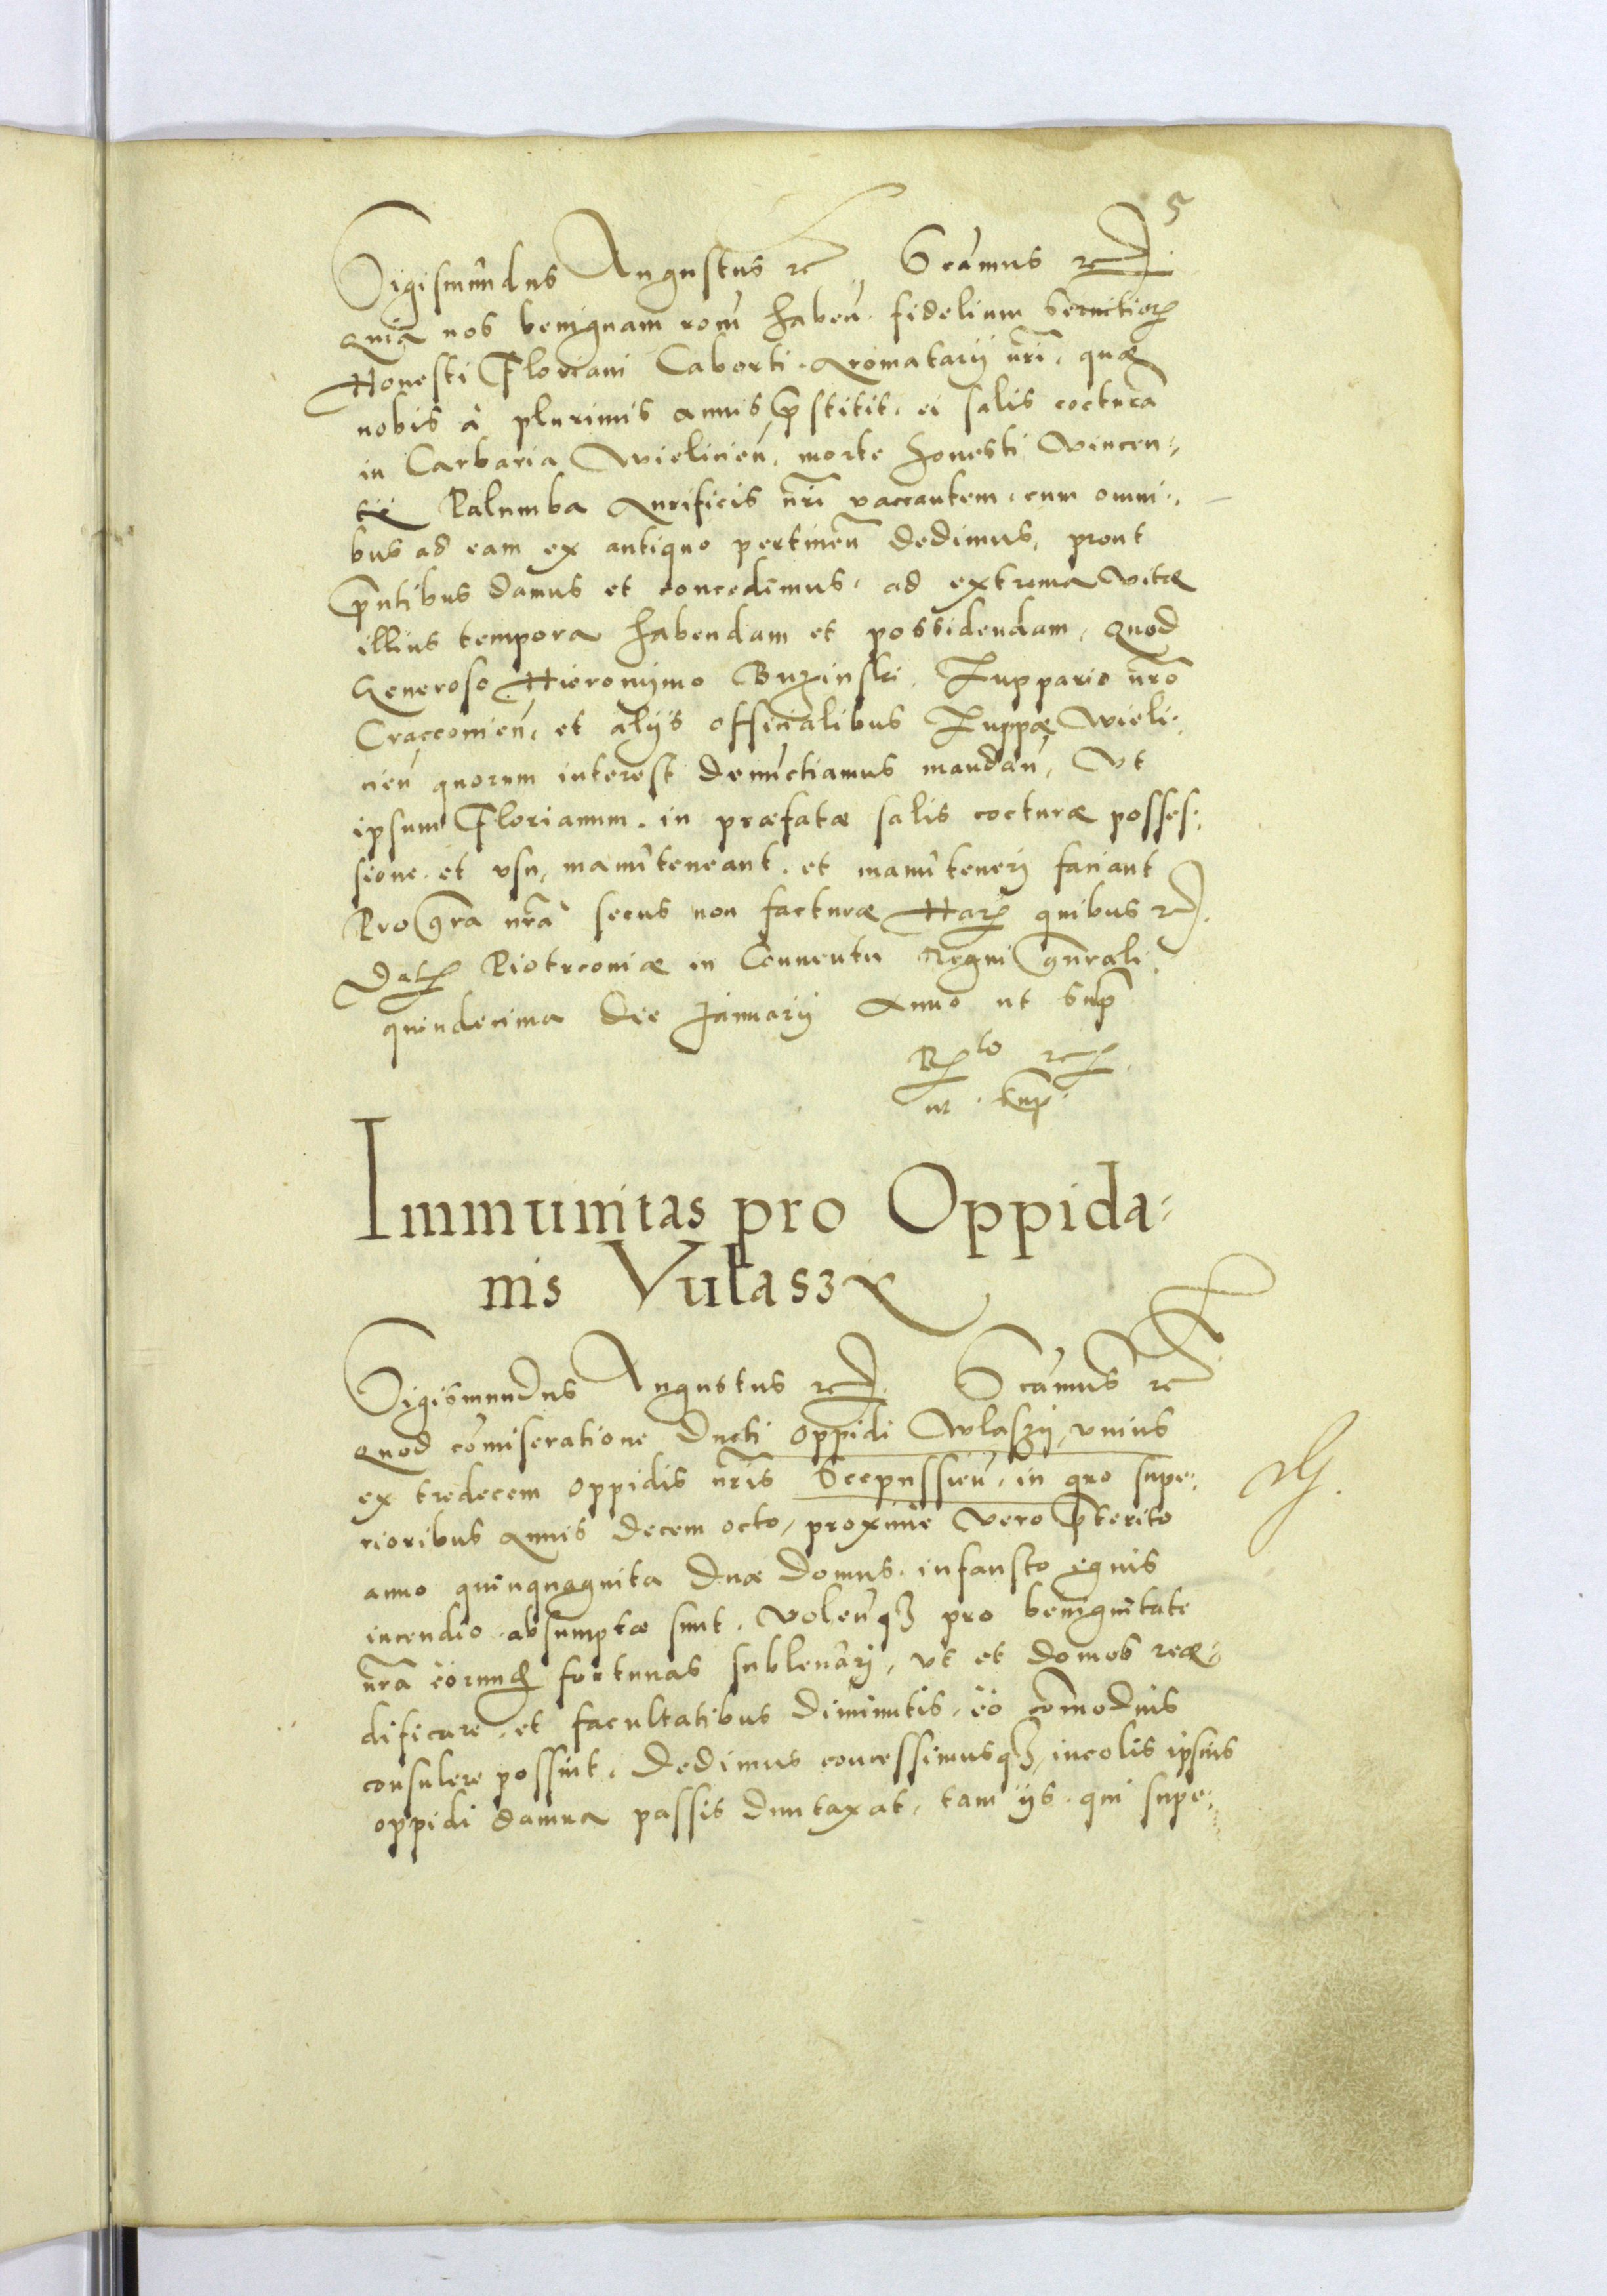 5
Sigismundus Augustus etc Scamus etc
quia nos benignam rōm habeñ fidelium servitior
Honesti Floriani Caborti Aromatarij nrī, quæ
nobis à plurimis annis p̄stitit, ei salis coctura
in Carbaria Wielicieñ, morte honesti Vincen=
tii Palumba Aurificis nrī vaccantem, cum omni=
bus ad eam ex antiquo pertineñ dedimus, prout
p̄ntibus damus et concedimus, ad extrema vitæ
illius tempora habendam et possidendam, Quod
Generoso Hieronijmo Buzinski, Zuppario nrō
Craccovieñ, et alijs officialibus Zuppæ Wieli=
cieñ quorum interest denunctiamus mandañ, Ut
ipsum Florianum in præfatæ salis cocturæ posses=
sione et usu, manuteneant et manuteneri faciant
Pro grā nrā secus non facturæ Har quibus etc
Dat Piotrcoviæ in Conventu Regni gn̄rali
quindecima die Januarij Anno ut sup̄
Rlo etc
ut sup̄
Immunitas pro Oppida=
nis Vulaszx
Sigismundus Augustus etc Scamus etc
Quod com̄iseratione ducti oppidi Wlaszij, unius
ex tredecem oppidis nrīs Scepussieñ, in quo supe=
rioribus Annis decem octo, proxime vero p̄terito
anno quinquaginta duæ domus infausto ignis
incendio absumptæ sunt, Voleñq3 pro benignitate
nrā eorund fortunas sublevari, ut et domos reæ=
dificare et facultatibus diminutis eò com̄odius
consulere possint, Dedimus concessimusq3 incolis ipsius
oppidi damna passis duntaxat, tam ijs qui supe=